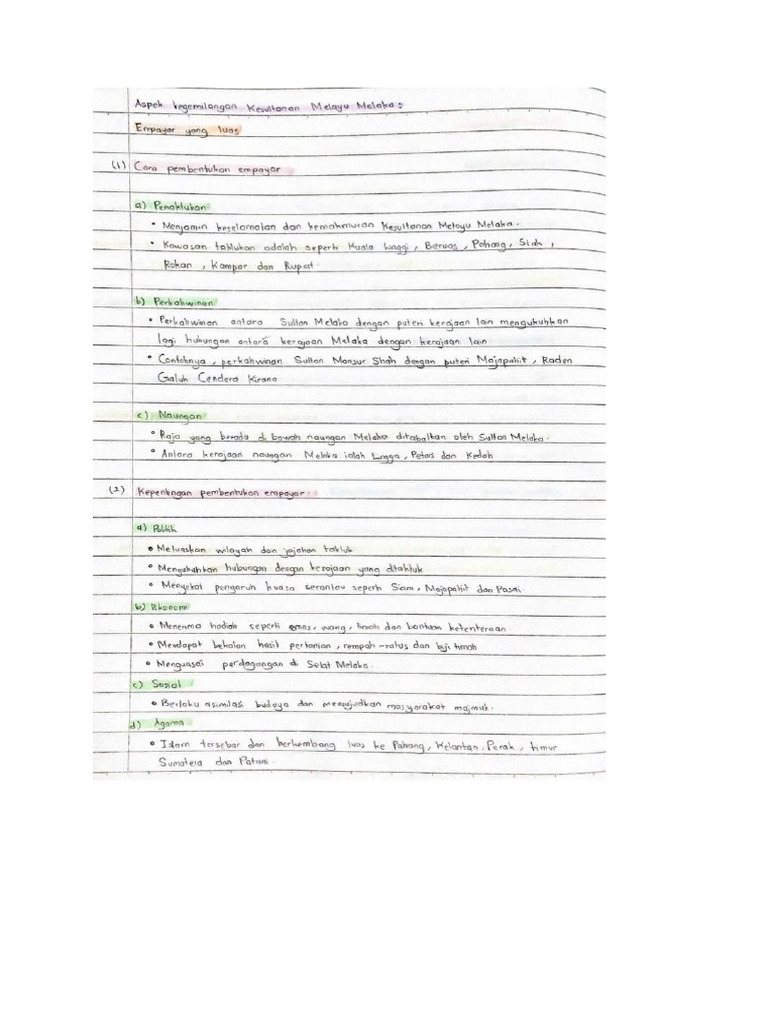 Aspek kegemilangan Kesultanan Melayu Melaka:
Empayar yang luas
(1) Cara pembentukan empayar
a) Penaklukan
• Menjamin keselamatan dan kemakmuran Kesultanan Melayu Melaka.
• Kawasan taklukan adalah seperti Kuala Linggi, Beruas, Pahang, Siak,
Rokan, Kampar dan Rupat.
b) Perkahwinan
• Perkahwinan antara Sultan Melaka dengan puteri kerajaan lain mengukuhkan
lagi hubungan antara kerajaan Melaka dengan kerajaan lain
• Contohnya, perkahwinan Sultan Mansur Shah dengan puteri Majapahit, Raden
Galuh Cendera Kirana
c) Naungan
• Raja yang berada di bawah naungan Melaka ditabalkan oleh Sultan Melaka.
• Antara kerajaan naungan Melaka ialah Lingga, Petani dan Kedah
(2) Kepentingan pembentukan empayar:
a) Politik
• Meluaskan wilayah dan jajahan takluk
• Mengukuhkan hubungan dengan kerajaan yang ditakluk
• Menyekat pengaruh kuasa serantau seperti Siam, Majapahit dan Pasai.
b) Ekonomi
• Menerima hadiah seperti emas, wang, timah dan bantuan ketenteraan
• Mendapat bekalan hasil pertanian, rempah-ratus dan biji timah
• Menguasai perdagangan di Selat Melaka.
c) Sosial
• Berlaku asimilasi budaya dan mewujudkan masyarakat majmuk.
d) Agama
• Islam tersebar dan berkembang luas ke Pahang, Kelantan, Perak, timur
Sumatera dan Patani.